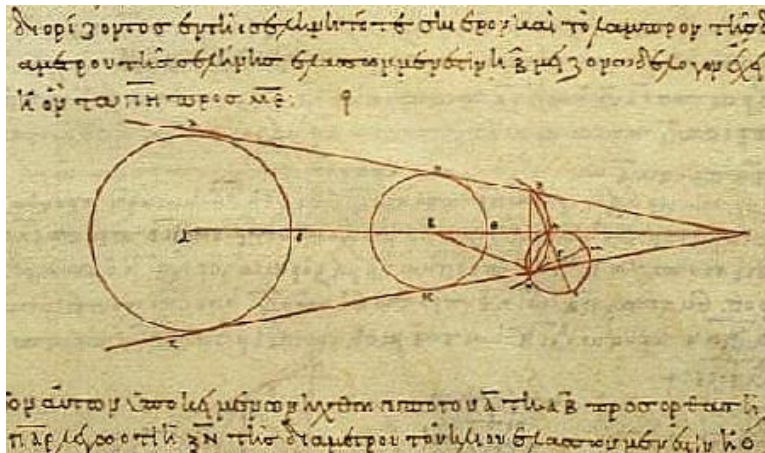 διορίζοντος ἐν τῆι σελήνηι τό τε σκιερὸν καὶ τὸ λαμπρὸν τῆς δι
αμέτρου τῆς σελήνης ἐλάσσων μέν ἐστιν ἢ β̅ μείζονα δὲ λόγον ἔχει
ἢ ὃν τὰ π̅η̅ πρὸς μ̅ε̅
αὐτῶν ὑποκειμένων ἤχθω ἀπὸ τοῦ α̅ τῆι α̅β̅ πρὸς ὀρθὰς ἡ
π̅α̅ρ̅ λέγω ὅτι ἡ ξ̅ν̅ τῆς διαμέτρου τοῦ ἡλίου ἐλάσσων μέν ἐστιν ἢ